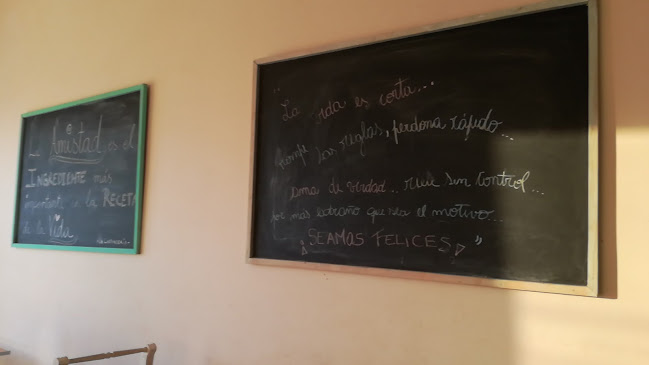 La Amistad es el
INGREDIENTE más
importante de la RECETA
de la Vida
"La vida es corta...
Rompe las reglas, perdona rápido...
ama de verdad.. ríe sin control...
por más extraño que sea el motivo...
¡SEAMOS FELICES!"